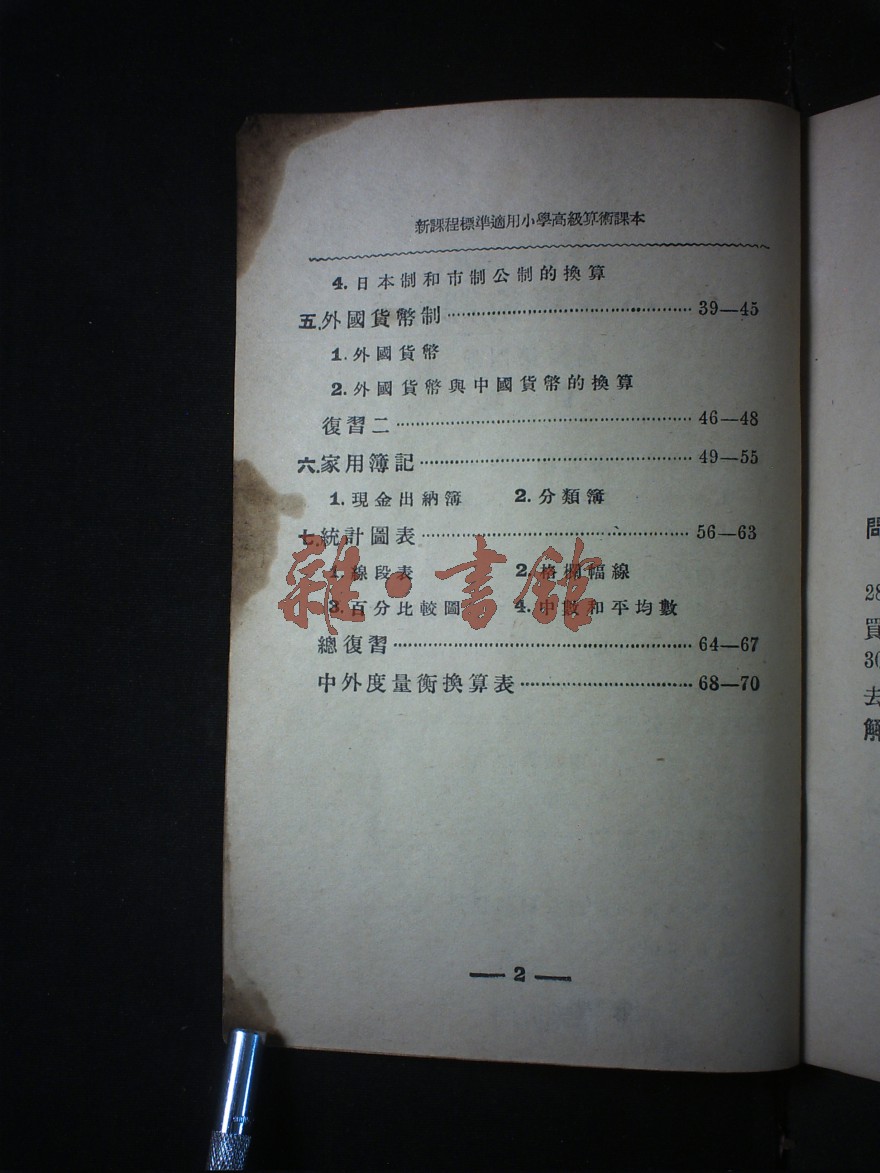 新課程標準適用小學高級算術課本
4. 日本制和市制公制的換算
五. 外國貨幣制 39—45
1. 外國貨幣
2. 外國貨幣與中國貨幣的換算
復習二 46—48
六. 家用簿記 49—55
1. 現金出納簿 2. 分類簿
七. 統計圖表 56—63
1. 線段表 2. 格欄幅線
3. 百分比較圖 4. 中數和平均數
總復習 64—67
中外度量衡換算表 68—70
— 2 —
雜·書館
問
28
買
30
去
解